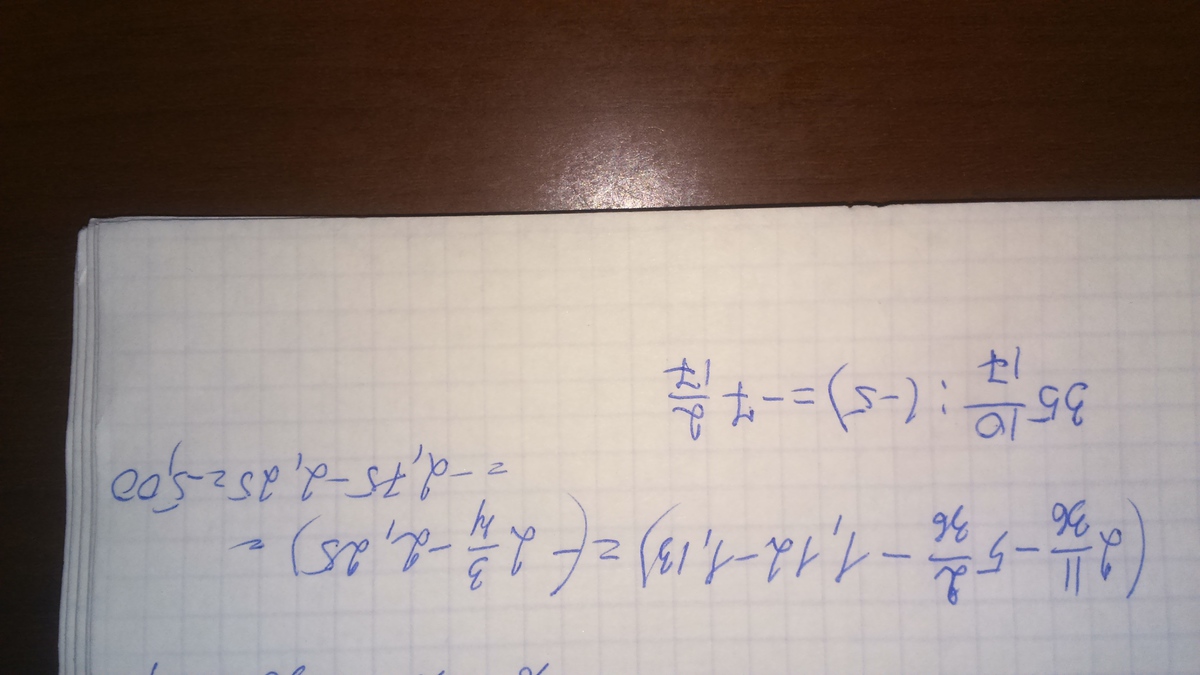 (2 11/36 - 5 2/36 - 1,12 - 1,13) = (-2 3/4 - 2,25) =
= -2,75 - 2,25 = -5,00
35 10/17 : (-5) = -7 2/17